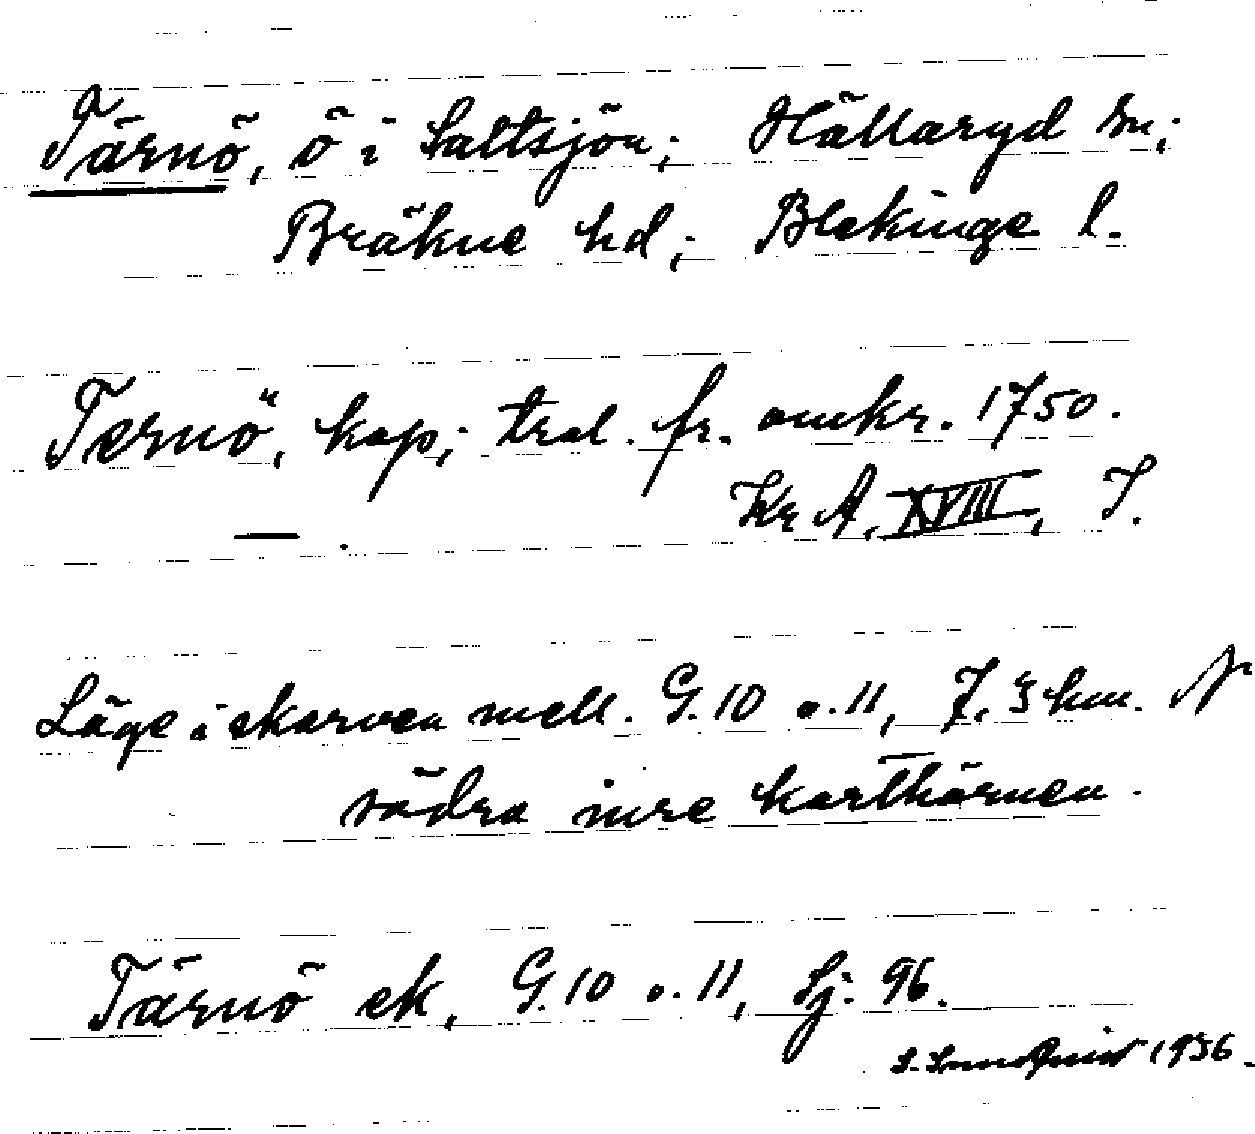 Tärnö, ö i Saltsjön; Hällaryd sn;
Bräkne hd; Blekinge l.
Ternö, kap; tral. fr. omkr. 1750.
Kr A. XVIII, I.
Läge i skarven mell. G. 10 o. 11, 7,5 km. N
södra inre karthörnen.
Tärnö ek, G. 10 o. 11, Sj. 96.
1936.